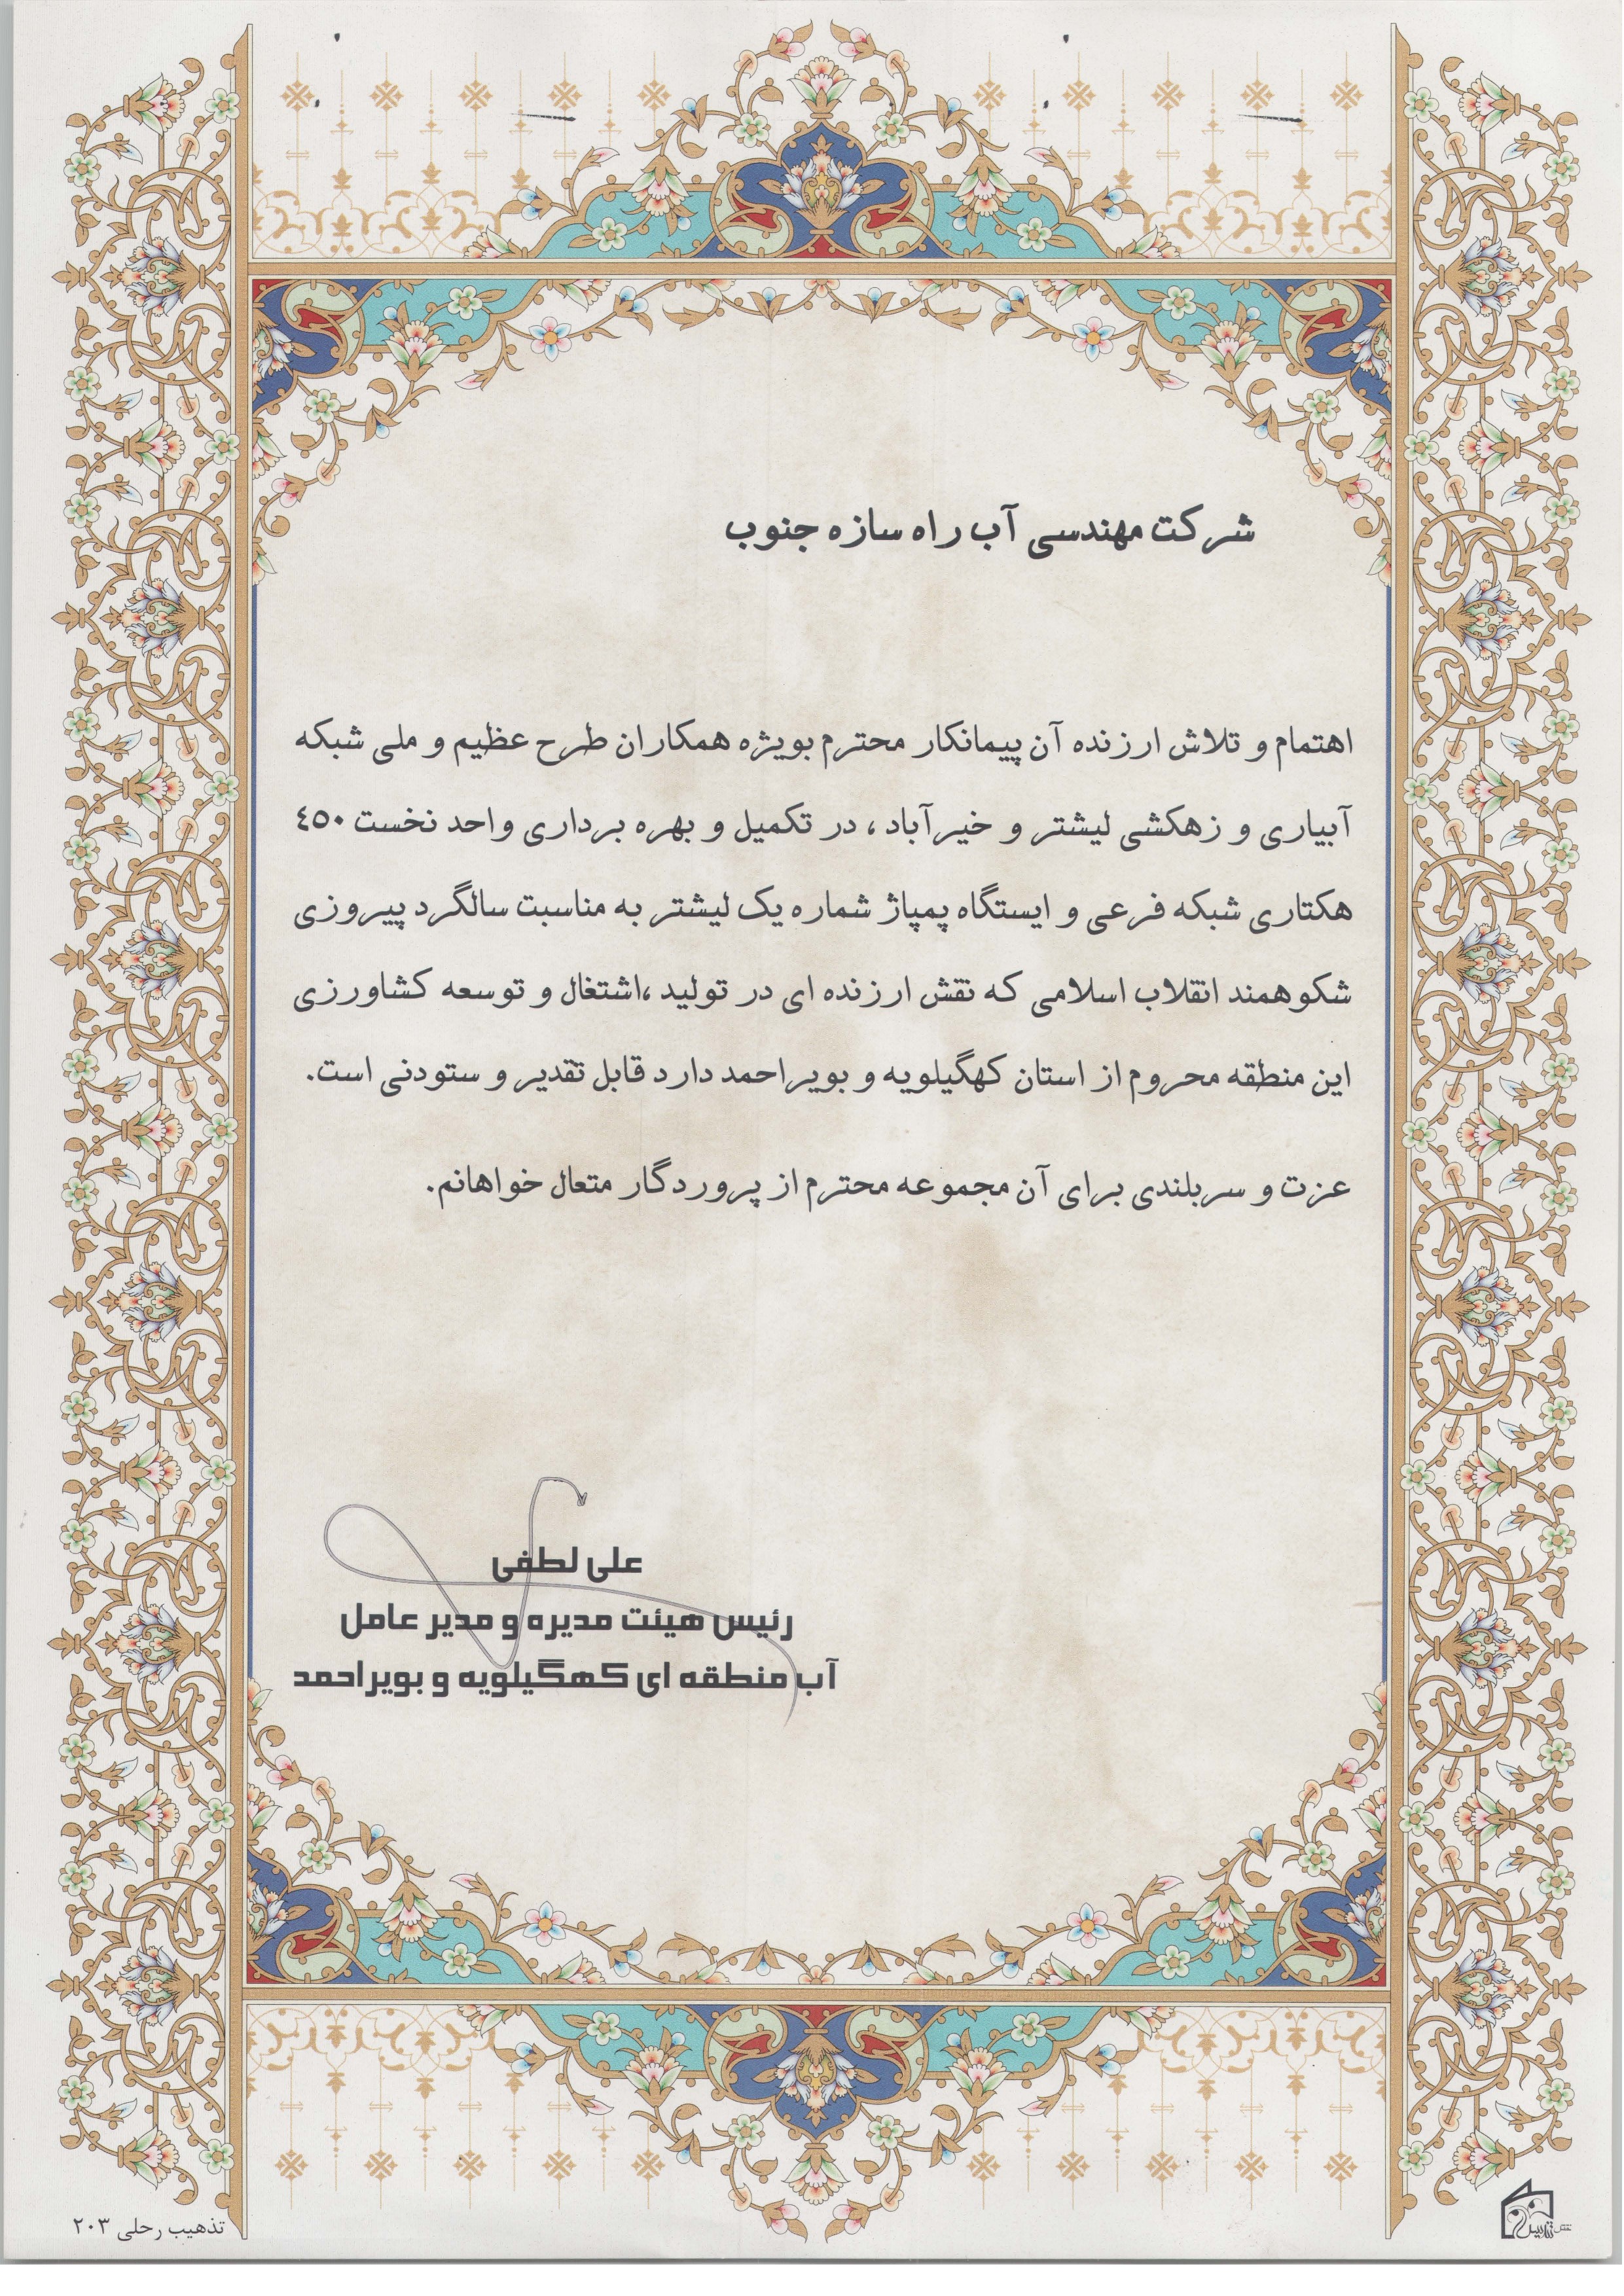 شرکت مهندسی آب راه سازه جنوب
اهتمام و تلاش ارزنده آن پیمانکار محترم بویژه همکاران طرح عظیم و ملی شبکه
آبیاری و زهکشی لیشتر و خیرآباد ، در تکمیل و بهره برداری واحد نخست ۴۵۰
هکتاری شبکه فرعی و ایستگاه پمپاژ شماره یک لیشتر به مناسبت سالگرد پیروزی
شکوهمند انقلاب اسلامی که نقش ارزنده ای در تولید ،اشتغال و توسعه کشاورزی
این منطقه محروم از استان کهگیلویه و بویراحمد دارد قابل تقدیر و ستودنی است.
عزت و سربلندی برای آن مجموعه محترم از پروردگار متعال خواهانم.
علی لطفی
رئیس هیئت مدیره و مدیر عامل
آب منطقه ای کهگیلویه و بویراحمد
تذهیب رحلی ۲۰۳